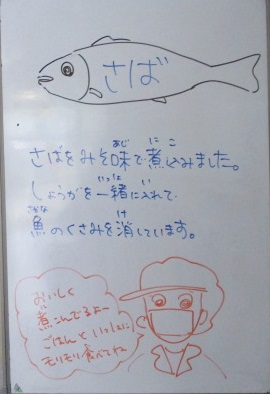 さば
さばをみそ味で煮込みました。
しょうがを一緒に入れて
魚のくさみを消しています。
おいしく
煮こんでるよー
ごはんといっしょに
モリモリ食べてね